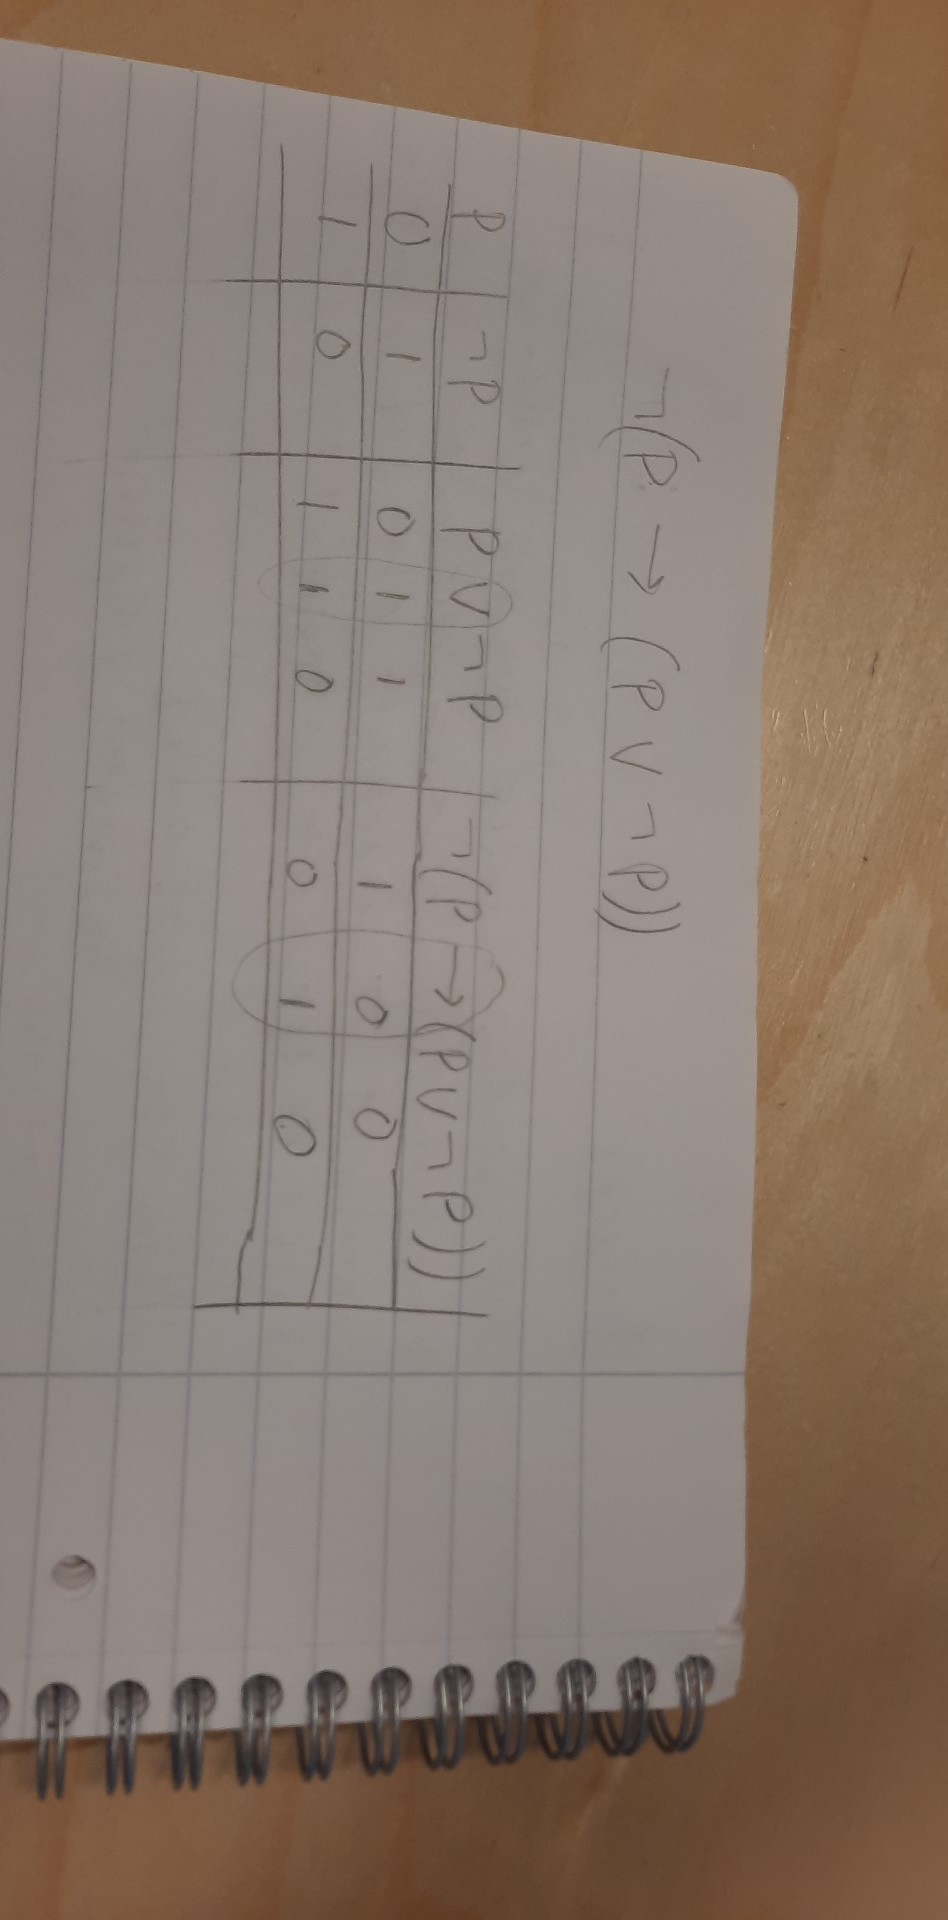 ¬(P → (P ∨ ¬P))
P ¬P P ∨ ¬P ¬(P → (P ∨ ¬P))
0 1 0 1 1 1 0 0
1 0 1 1 0 0 1 0